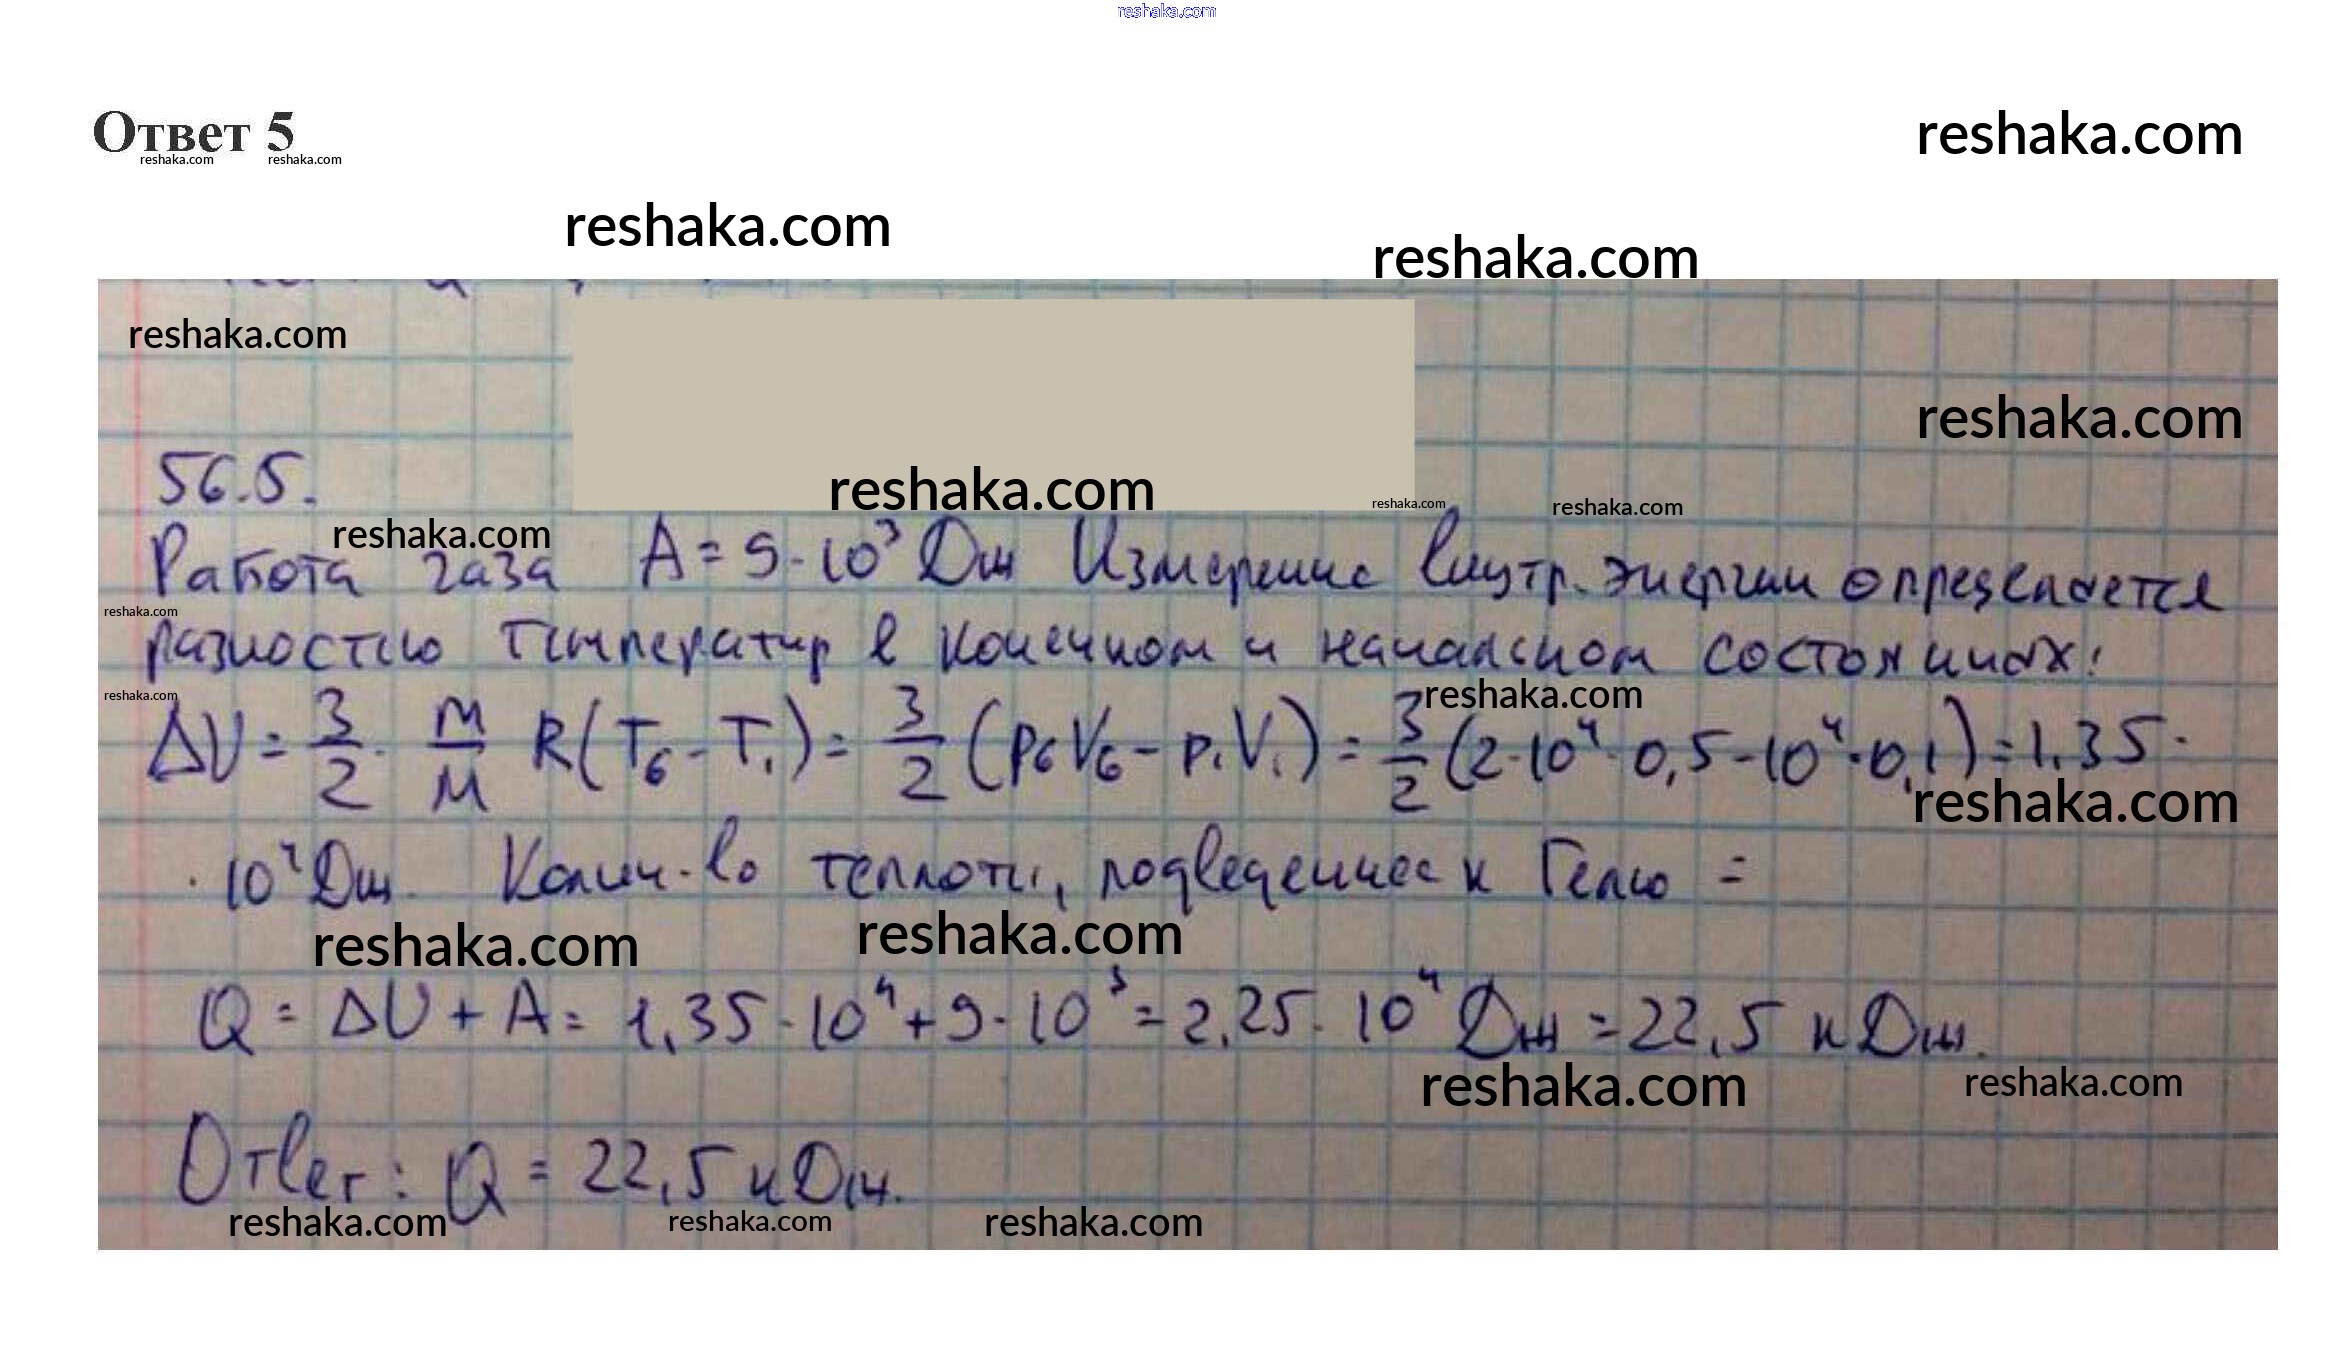 reshaka.com
Ответ 5
reshaka.com reshaka.com
reshaka.com
reshaka.com
reshaka.com
reshaka.com
reshaka.com
56.5.
reshaka.com
reshaka.com reshaka.com
reshaka.com
Работа газа A = 9·10³ Дж Измерение внутр. энергии определяется
reshaka.com
разностью температур в конечном и начальном состояниях:
reshaka.com
reshaka.com
ΔU = 3/2 · m/M R(T₆ - T₁) = 3/2 (p₆V₆ - p₁V₁) = 3/2 (2·10⁴·0,5 - 10⁴·0,1) = 1,35·
reshaka.com
·10⁴ Дж. Колич-во теплоты, подведенное к Гелию =
reshaka.com
reshaka.com
Q = ΔU + A = 1,35·10⁴ + 9·10³ = 2,25·10⁴ Дж = 22,5 кДж.
reshaka.com
reshaka.com
Ответ: Q = 22,5 кДж.
reshaka.com reshaka.com reshaka.com